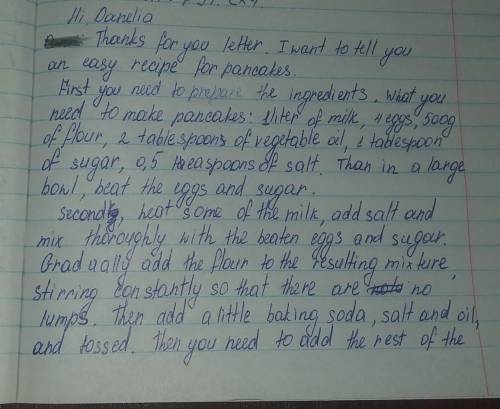 Hi, Danelia
Thanks for you letter. I want to tell you
an easy recipe for pancakes.
First you need to prepare the ingredients. what you
need to make pancakes: 1liter of milk, 4 eggs, 500g
of flour, 2 tablespoons of vegetable oil, 1 tablespoon
of sugar, 0,5 teaspoons of salt. Than in a large
bowl, beat the eggs and sugar.
second, heat some of the milk, add salt and
mix thoroughly with the beaten eggs and sugar.
Gradually add the flour to the resulting mixture,
stirring constantly so that there are no
lumps. Then add a little baking soda, salt and oil,
and tossed. Then you need to add the rest of the